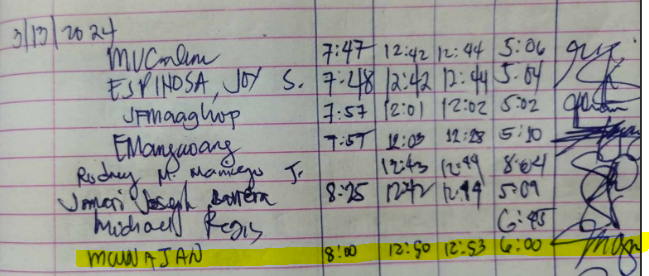 3/13/2024
7:47 12:42 12:44 5:06
ESPINOSA, JOY S. 7:48 12:42 12:44 5:04
JFMaaghop 7:57 12:01 12:02 5:02
EManguoang 7:57 12:03 12:28 5:10
Rodney M. J. 12:43 12:44 8:04
Joseph Barrera 8:25 12:42 12:44 5:09
Michael Regis 6:45
8:00 12:50 12:53 6:00